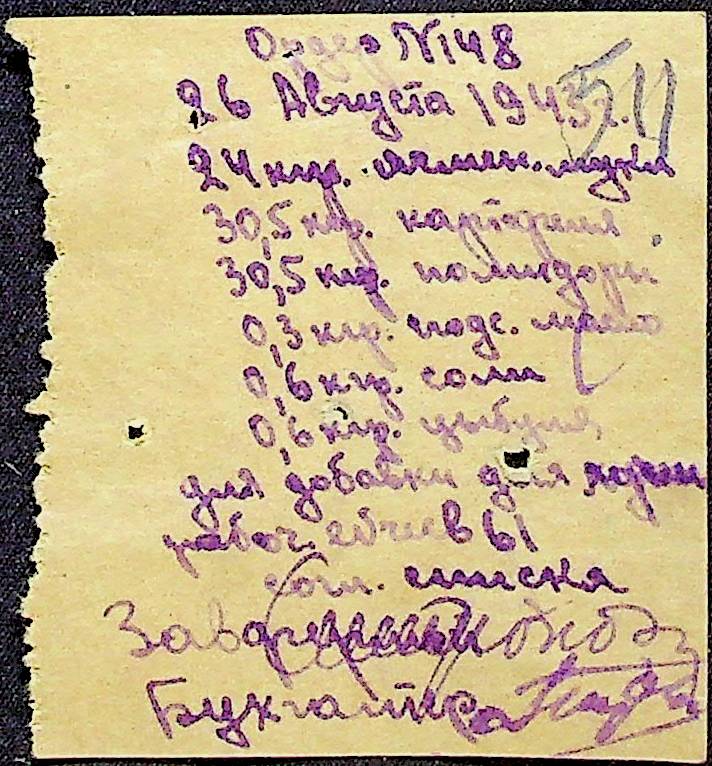 Ордер №148
26 Августа 1943г. 511
24 кгр. ячмен. муки
30,5 кгр. картофеля
30,5 кгр. помидоры
0,3 кгр. подс. масло
0,6 кгр. соли
0,6 кгр. цыбуля
для добавки для кухни
рабоч.
согл. списка
Зав
Бухгалтер